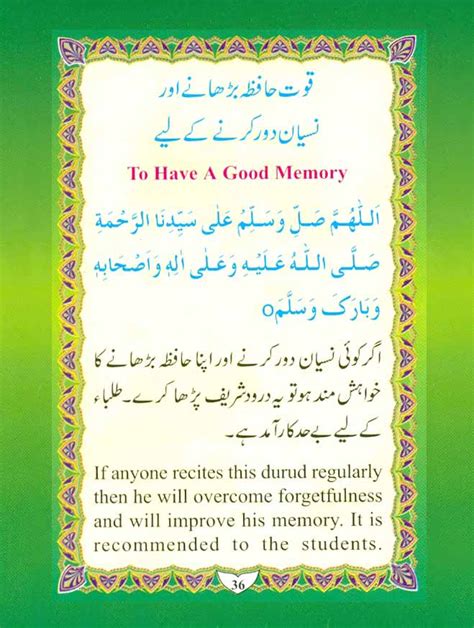 قوت حافظہ بڑھانے اور
نسیان دور کرنے کے لیے
To Have A Good Memory
اَللّٰهُمَّ صَلِّ وَسَلِّمْ عَلٰی سَیِّدِنَا الرَّحْمَةِ
صَلَّی اللّٰهُ عَلَیْهِ وَعَلٰی اٰلِهٖ وَاَصْحَابِهٖ
وَبَارَکَ وَسَلَّمَo
اگر کوئی نسیان دور کرنے اور اپنا حافظہ بڑھانے کا
خواہش مند ہو تو یہ درود شریف پڑھا کرے۔ طلباء
کے لیے بے حد کار آمد ہے۔
If anyone recites this durud regularly
then he will overcome forgetfulness
and will improve his memory. It is
recommended to the students.
36